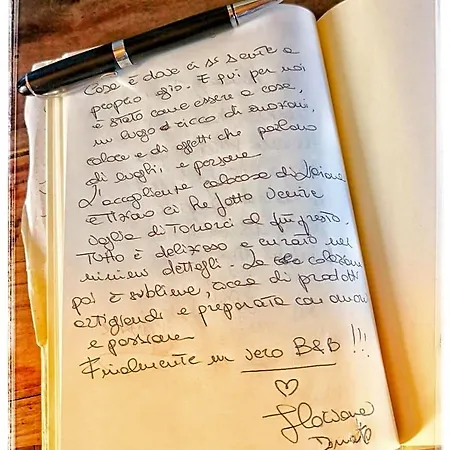 Casa è dove ci si sente a
proprio agio. E qui per noi
è stato come essere a casa,
un luogo ricco di emozioni,
calore e di oggetti che parlano
di luoghi, e persone
L'accogliente calorosa di
e ci ha fatto venire
voglia di tornarci al più presto.
Tutto è delizioso e curato nei
minimi dettagli. La colazione
poi è sublime, ricca di prodotti
artigianali e preparata con amore
e passione
Finalmente un vero B&B !!!
♡
Floriana
Donato